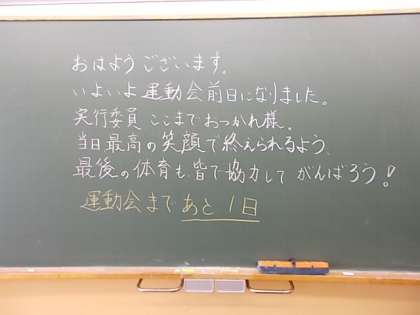 おはようございます。
いよいよ運動会前日になりました。
実行委員ここまでおつかれ様。
当日最高の笑顔で終えられるよう、
最後の体育も皆で協力して がんばろう！
運動会まで あと 1日